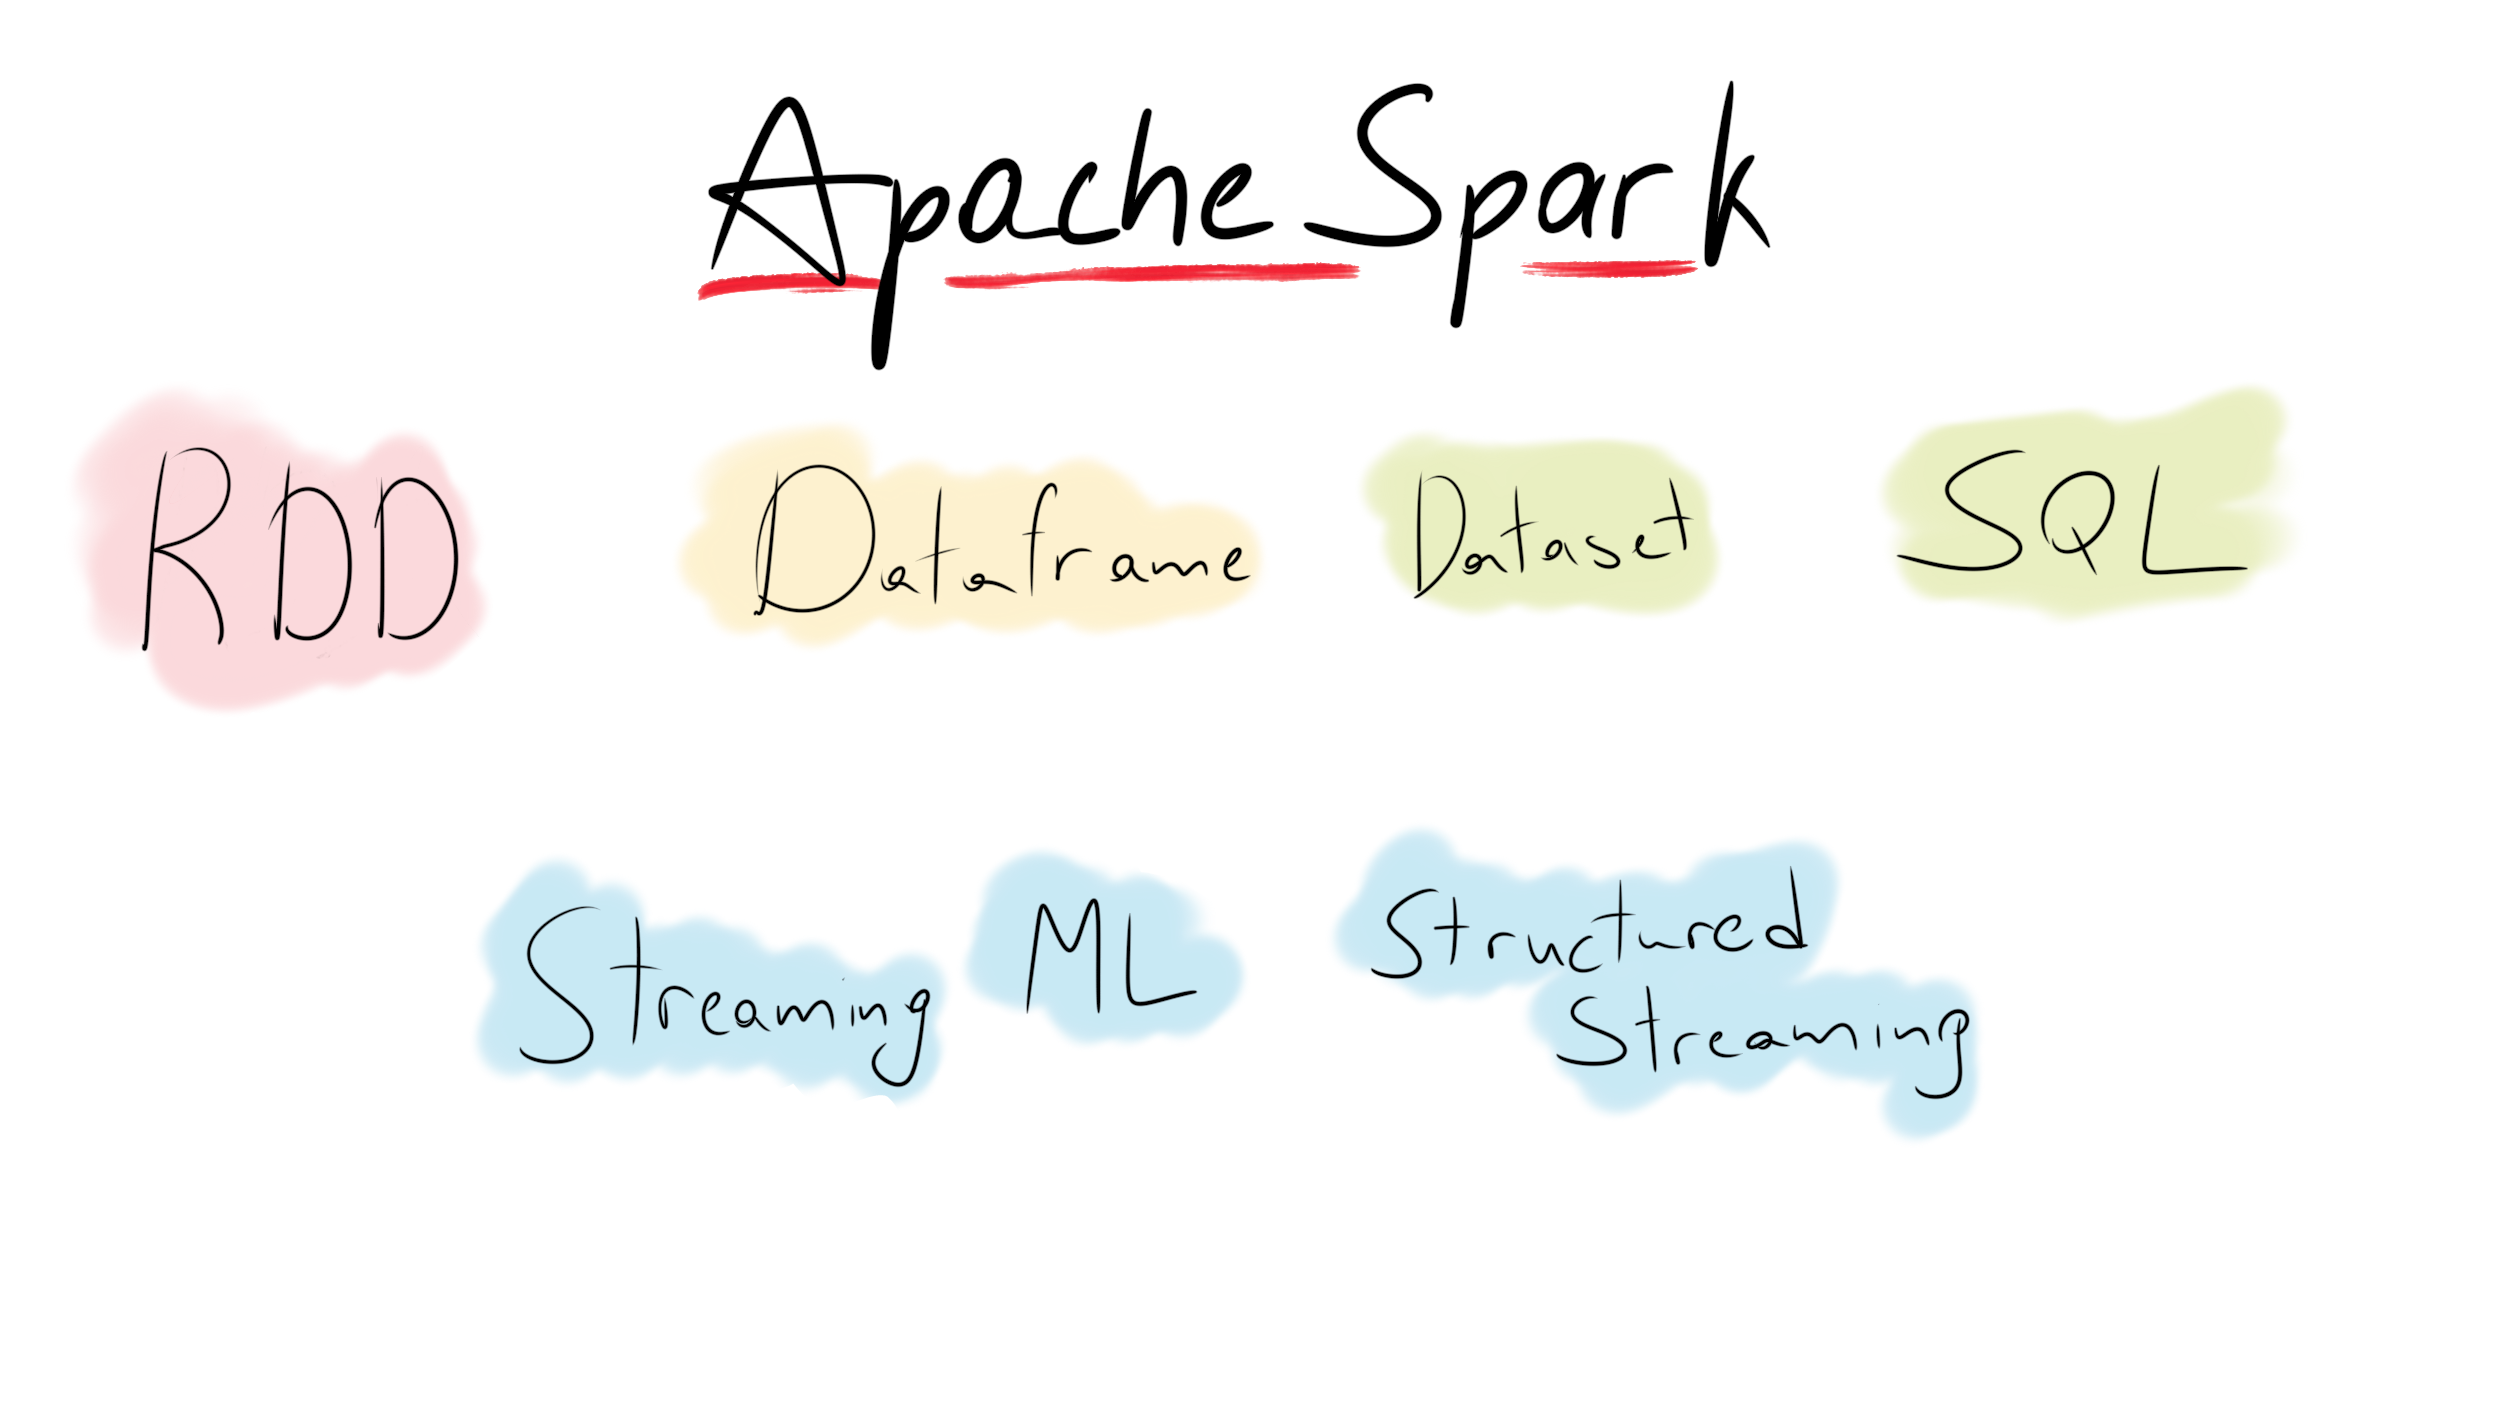 Apache Spark
RDD
Dataframe
Dataset
SQL
Streaming
ML
Structured
Streaming